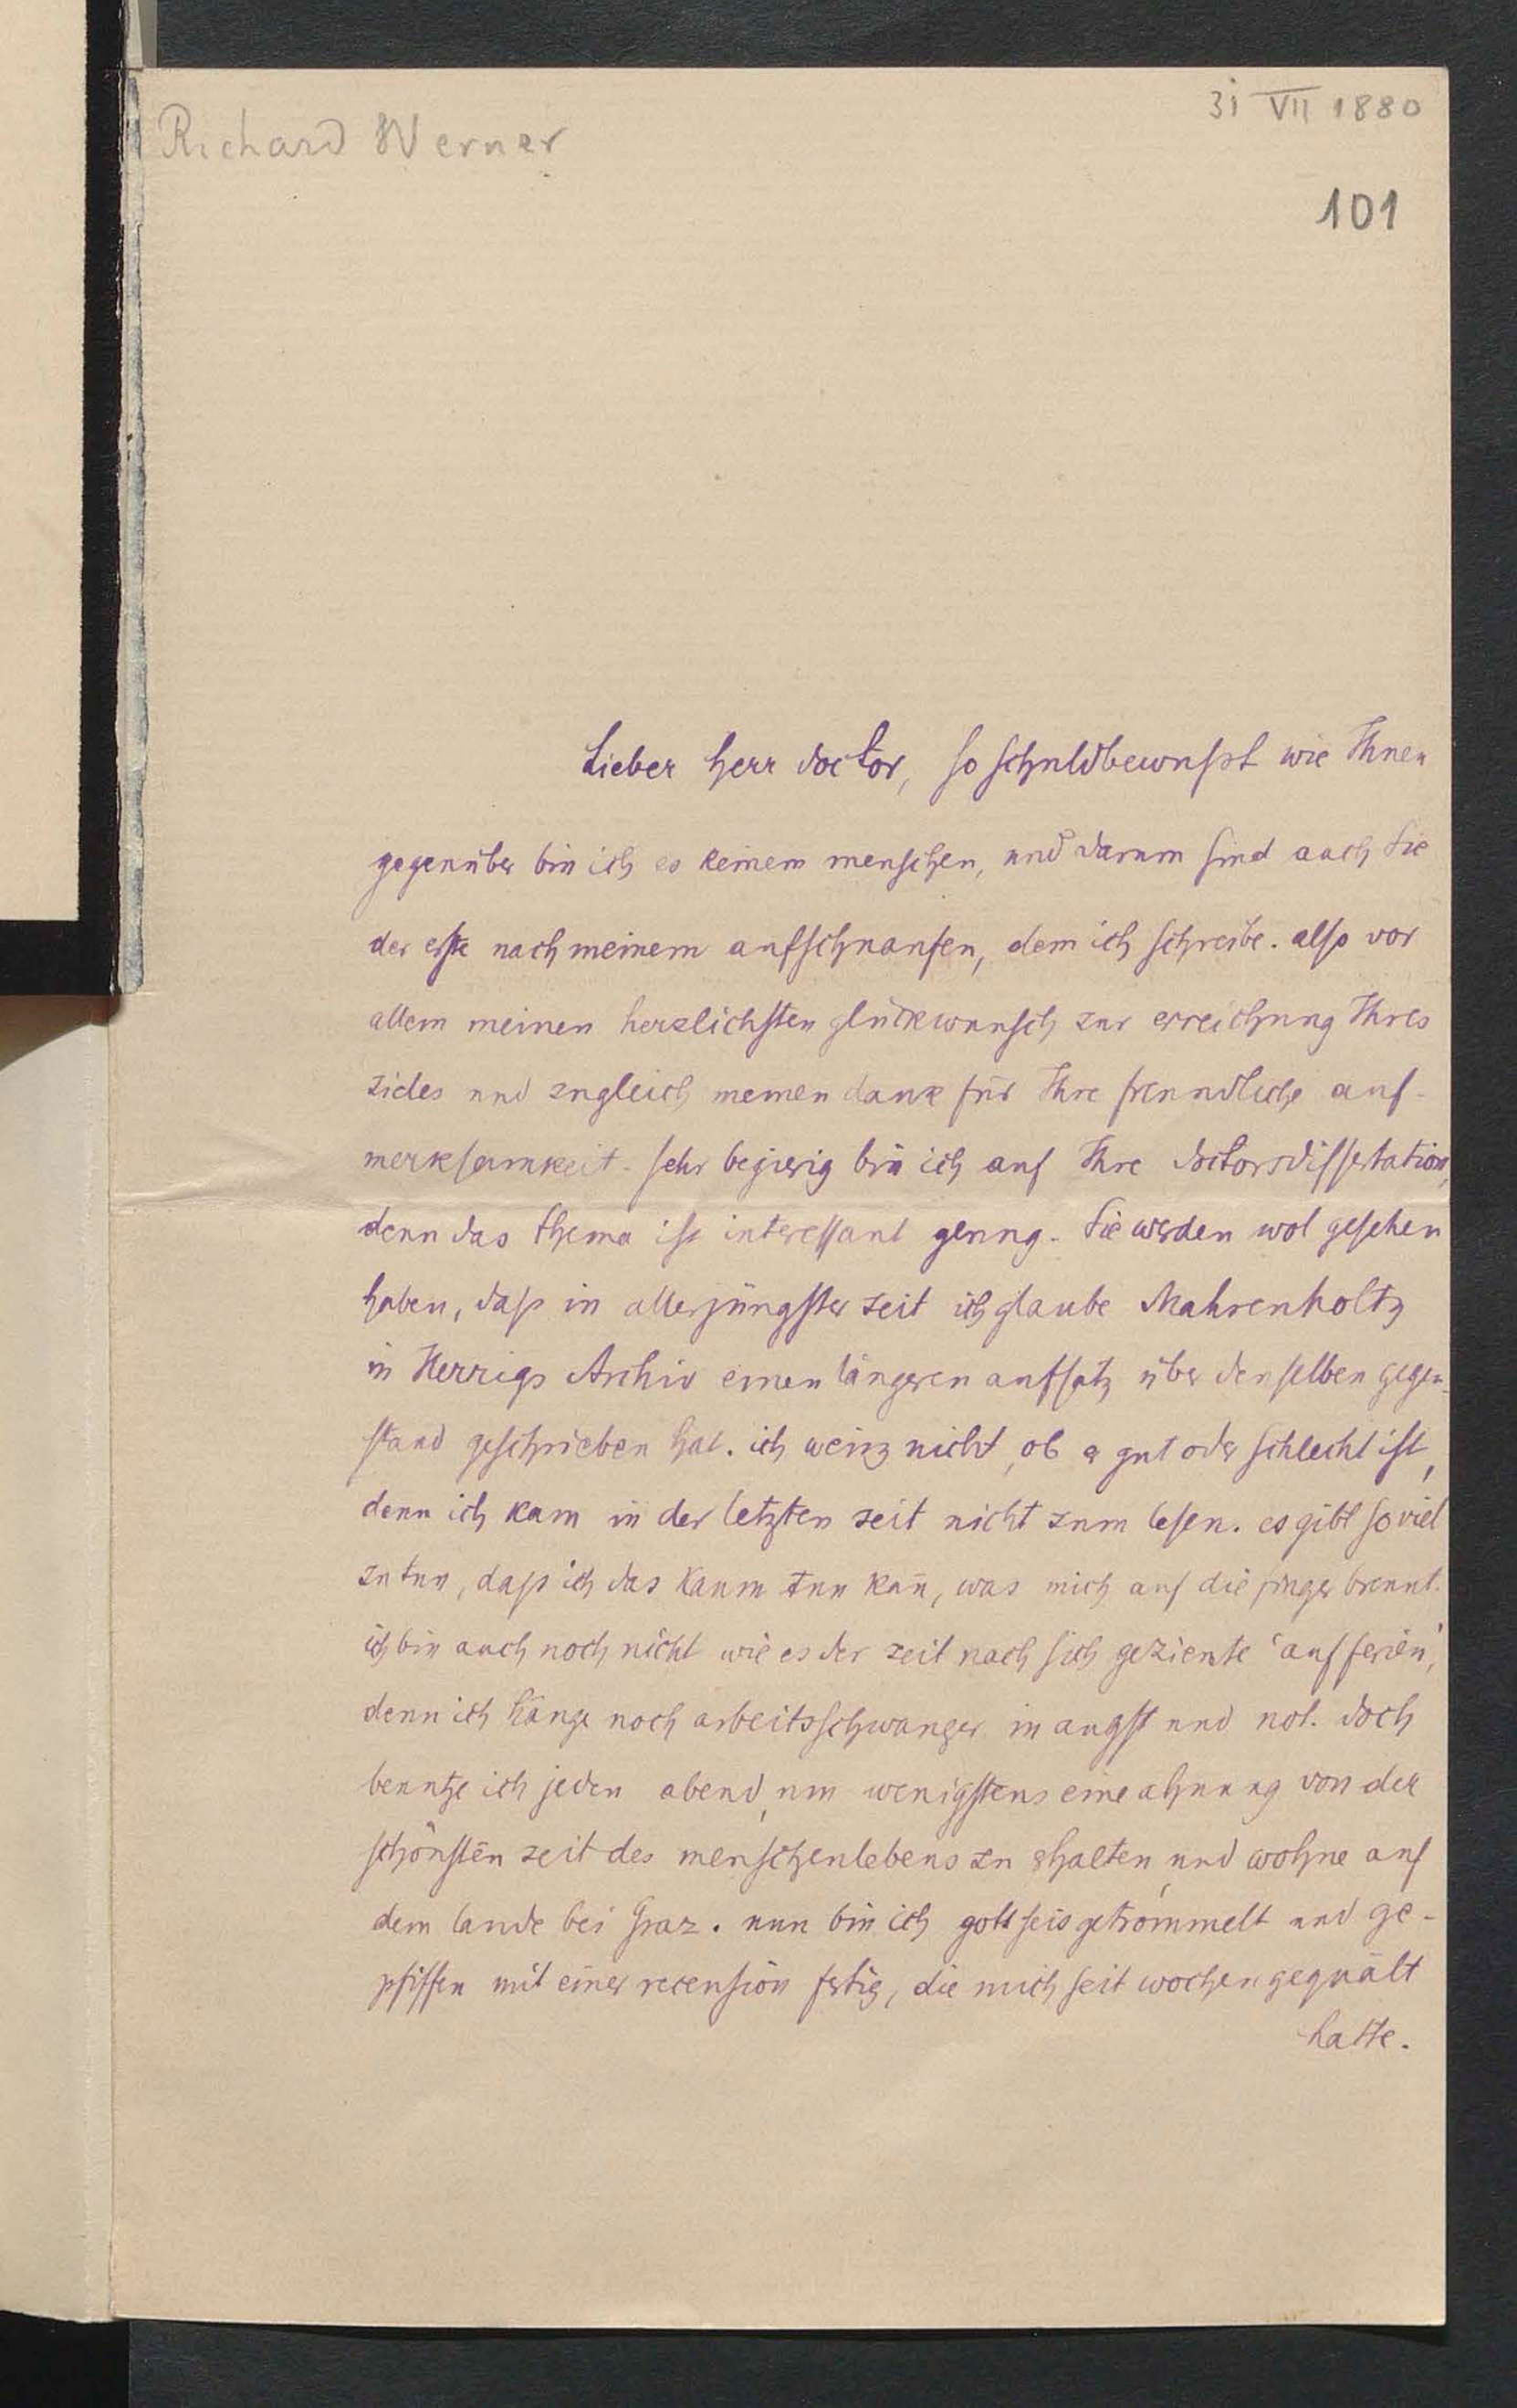 31 VII 1880
Richard Werner
101
Lieber herr doctor, so schuldbewusst wie Ihnen
gegenüber bin ich es keinem menschen, und darum sind auch Sie
der erste nach meinem aufschnaufen, dem ich schreibe. also vor
allem meinen herzlichsten glückwunsch zur erreichung Ihres
zieles und zugleich meinen dank für Ihre freundliche auf-
merksamkeit. sehr begierig bin ich auf Ihre doctorsdissertation,
denn das thema ist interessant genug. Sie werden wol gesehen
haben, dass in allerjüngster zeit ich glaube Mahrenholtz
in Herrigs Archiv einen längeren aufsatz über denselben gegen-
stand geschrieben hat. ich weisz nicht, ob er gut oder schlecht ist,
denn ich kam in der letzten zeit nicht zum lesen. es gibt so viel
zu tun, dass ich das kaum tun kañ, was mich auf die finger brennt.
ich bin auch noch nicht wie es der zeit nach sich geziemte 'auf ferien',
denn ich hänge noch arbeitsschwanger in angst und not. doch
benutze ich jeden abend, um wenigstens eine ahnung von der
schönsten zeit des menschenlebens zu erhalten, und wohne auf
dem lande bei Graz. nun bin ich gott seis getrommelt und ge-
pfiffen mit einer recension fertig, die mich seit wochen gequält
hatte.